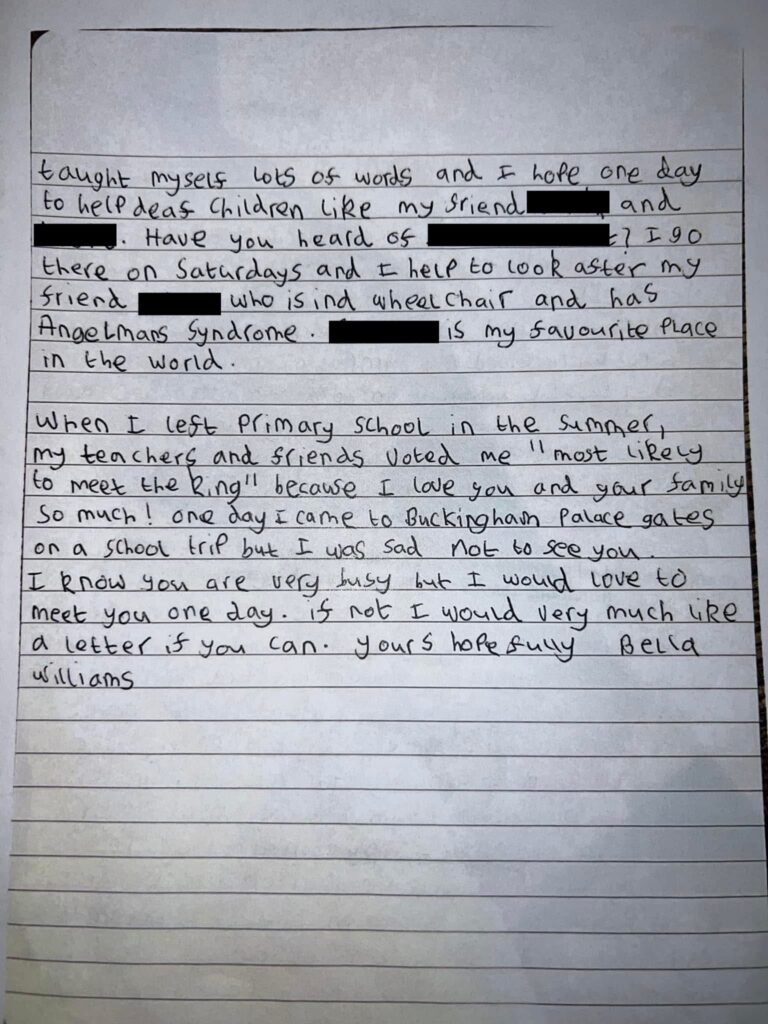 taught myself lots of words and I hope one day
to help deaf children like my friend and
. Have you heard of ? I go
there on Saturdays and I help to look after my
friend who is ind wheelchair and has
Angelmans Syndrome. is my favourite place
in the world.
When I left primary school in the summer,
my teachers and friends voted me "most likely
to meet the King" because I love you and your family
so much! one day I came to Buckingham Palace gates
on a school trip but I was sad not to see you.
I know you are very busy but I would love to
meet you one day. if not I would very much like
a letter if you can. yours hopefully Bella
williams